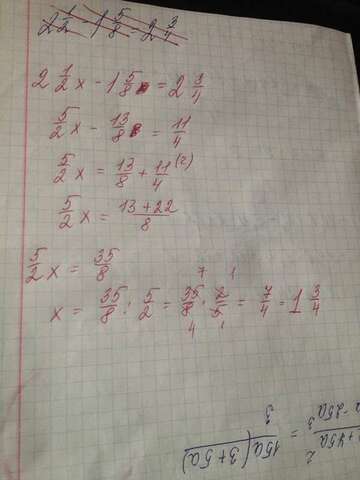 2 1/2 - 1 5/8 = 2 3/4
2 1/2 x - 1 5/8 = 2 3/4
5/2 x - 13/8 = 11/4
5/2 x = 13/8 + 11/4 (2)
5/2 x = (13+22)/8
5/2 x = 35/8
x = 35/8 : 5/2 = 35/8 · 2/5 = 7/4 = 1 3/4
7 1
4 1
15a(3+5a)
3